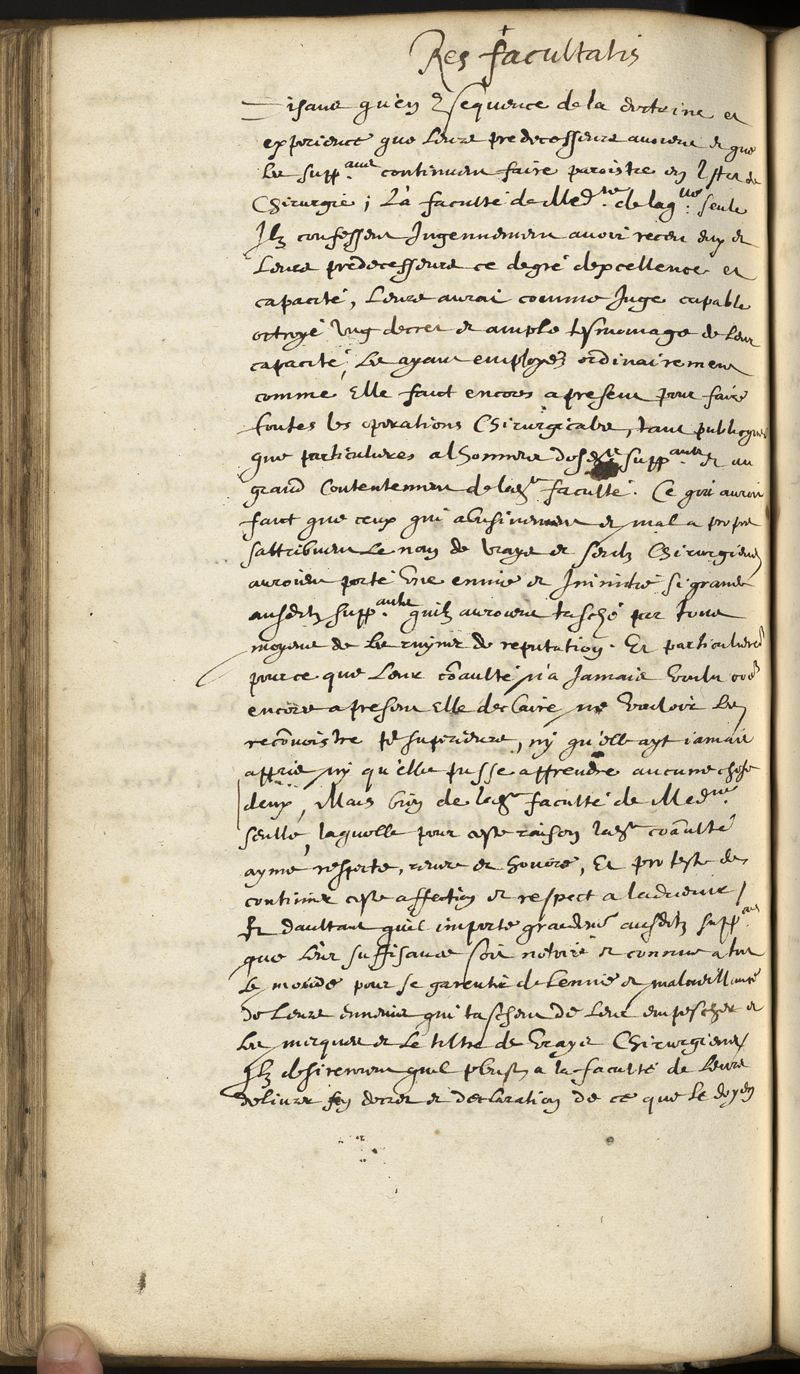 Res facultatis
Disans qu'en consequence de la doctrine et
experience que leurs predecesseurs avoient et que
les supp.ans continuent faire paroistre en
Chirurgie ; La faculté de Med.ne de laq.lle seule
Ilz confessent Ingenuement avoir receu eux et
Leurs predecesseurs ce degré dexcellence et
capacité, Leurs auroit comme Juge capable
octroyé ung decret et ample tesmoinage de leur
capacité, Les ayant employez ordinairement
comme Elle faict encores a present pour faire
toutes les operations Chirurgicales, tant publiques
que particulieres a lhonneur desd. supp.ans et au
grand Contentement de lad. faculté. Ce qui auroit
faict que ceux qui abusivement et mal a propos
sattribuent Le nom de vrays et seulz Chirurgiens
auroient porté Une envie et Inimitié si grande
ausditz supp.ans quilz auroient tasché par tous
moyens de Les ruyner de reputation. Et particulierem.t
pource que Leur coãulté n'a Jamais voulu
encore a present Elle declaire ne vouloir Les
recõnoistre pour superieurs, ny qu'elle ayt iamais
appris ny qu'elle pusse apprendre aucune chose
deux, Mais bien de lad. faculté de Med.ne
seulle, laquelle pour ceste raison lad. coãulté
ayme respecte, revere et honore, Et proteste de
continuer ceste affection et respect a ladvenir /
Et daultant quil importe grandem.t ausditz supp.ans
que Leur suffisance soit notoire et connue a tout
Le monde pour se garentir de Lennuie et malveillance
de Leurs ennemis qui taschent de Leur empescher et
Les et Le tiltre de vrays Chirurgiens /
Ilz desireroient quil pleust a la faculté de Leurs
delivrer son decret et declaration de ce que le doyen